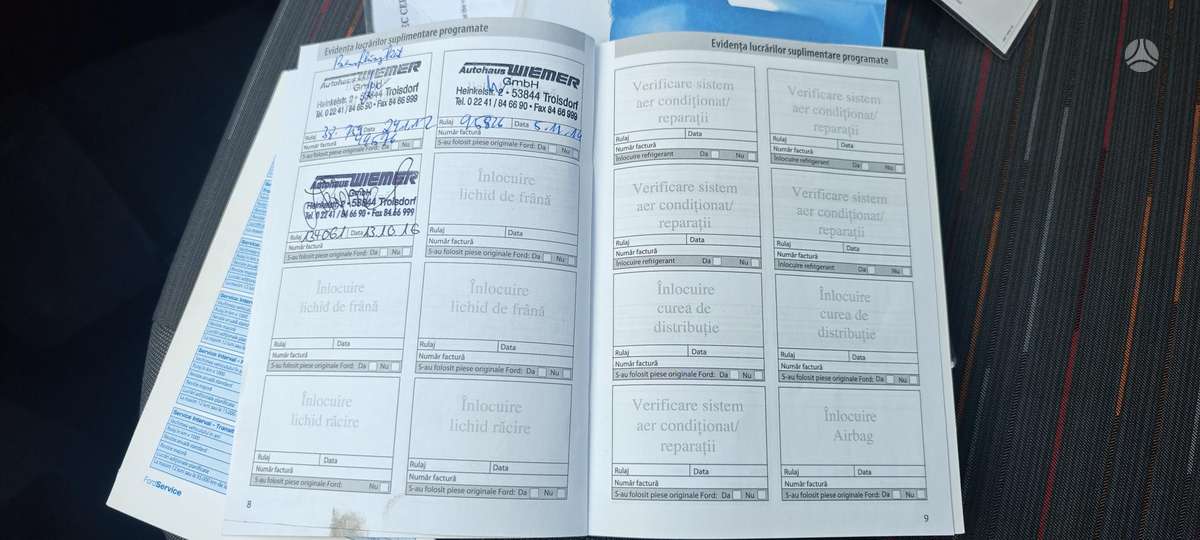 Evidența lucrărilor suplimentare programate
Autohaus WIEMER
GmbH
Heinkelstr. 2 • 53844 Troisdorf
Tel. 0 22 41 / 84 66 90 • Fax 84 66 999
Rulaj Data
Număr factură
S-au folosit piese originale Ford: Da Nu
Autohaus WIEMER
GmbH
Heinkelstr. 2 • 53844 Troisdorf
Tel. 0 22 41 / 84 66 90 • Fax 84 66 999
Rulaj 95826 Data 5.11.14
Număr factură
S-au folosit piese originale Ford: Da Nu
Autohaus WIEMER
GmbH
Heinkelstr. 2 • 53844 Troisdorf
Tel. 0 22 41 / 84 66 90 • Fax 84 66 999
Rulaj 134061 Data 13.10.16
Număr factură
S-au folosit piese originale Ford: Da Nu
Înlocuire
lichid de frână
Rulaj Data
Număr factură
S-au folosit piese originale Ford: Da Nu
Înlocuire
lichid de frână
Rulaj Data
Număr factură
S-au folosit piese originale Ford: Da Nu
Înlocuire
lichid de frână
Rulaj Data
Număr factură
S-au folosit piese originale Ford: Da Nu
Înlocuire
lichid răcire
Rulaj Data
Număr factură
S-au folosit piese originale Ford: Nu
Înlocuire
lichid răcire
Rulaj Data
Număr factură
S-au folosit piese originale Ford: Da Nu
8
FordService
Evidența lucrărilor suplimentare programate
Verificare sistem
aer condiționat/
reparații
Rulaj Data
Număr factură
Înlocuire refrigerant Da Nu
Verificare sistem
aer condiționat/
reparații
Rulaj Data
Număr factură
Înlocuire refrigerant Da Nu
Verificare sistem
aer condiționat/
reparații
Rulaj Data
Număr factură
Înlocuire refrigerant Da Nu
Verificare sistem
aer condiționat/
reparații
Rulaj Data
Număr factură
Înlocuire refrigerant Da Nu
Înlocuire
curea de
distribuție
Rulaj Data
Număr factură
S-au folosit piese originale Ford: Da Nu
Înlocuire
curea de
distribuție
Rulaj Data
Număr factură
S-au folosit piese originale Ford: Da Nu
Verificare sistem
aer condiționat/
reparații
Rulaj Data
Număr factură
S-au folosit piese originale Ford: Da Nu
Înlocuire
Airbag
Rulaj Data
Număr factură
S-au folosit piese originale Ford: Da Nu
9